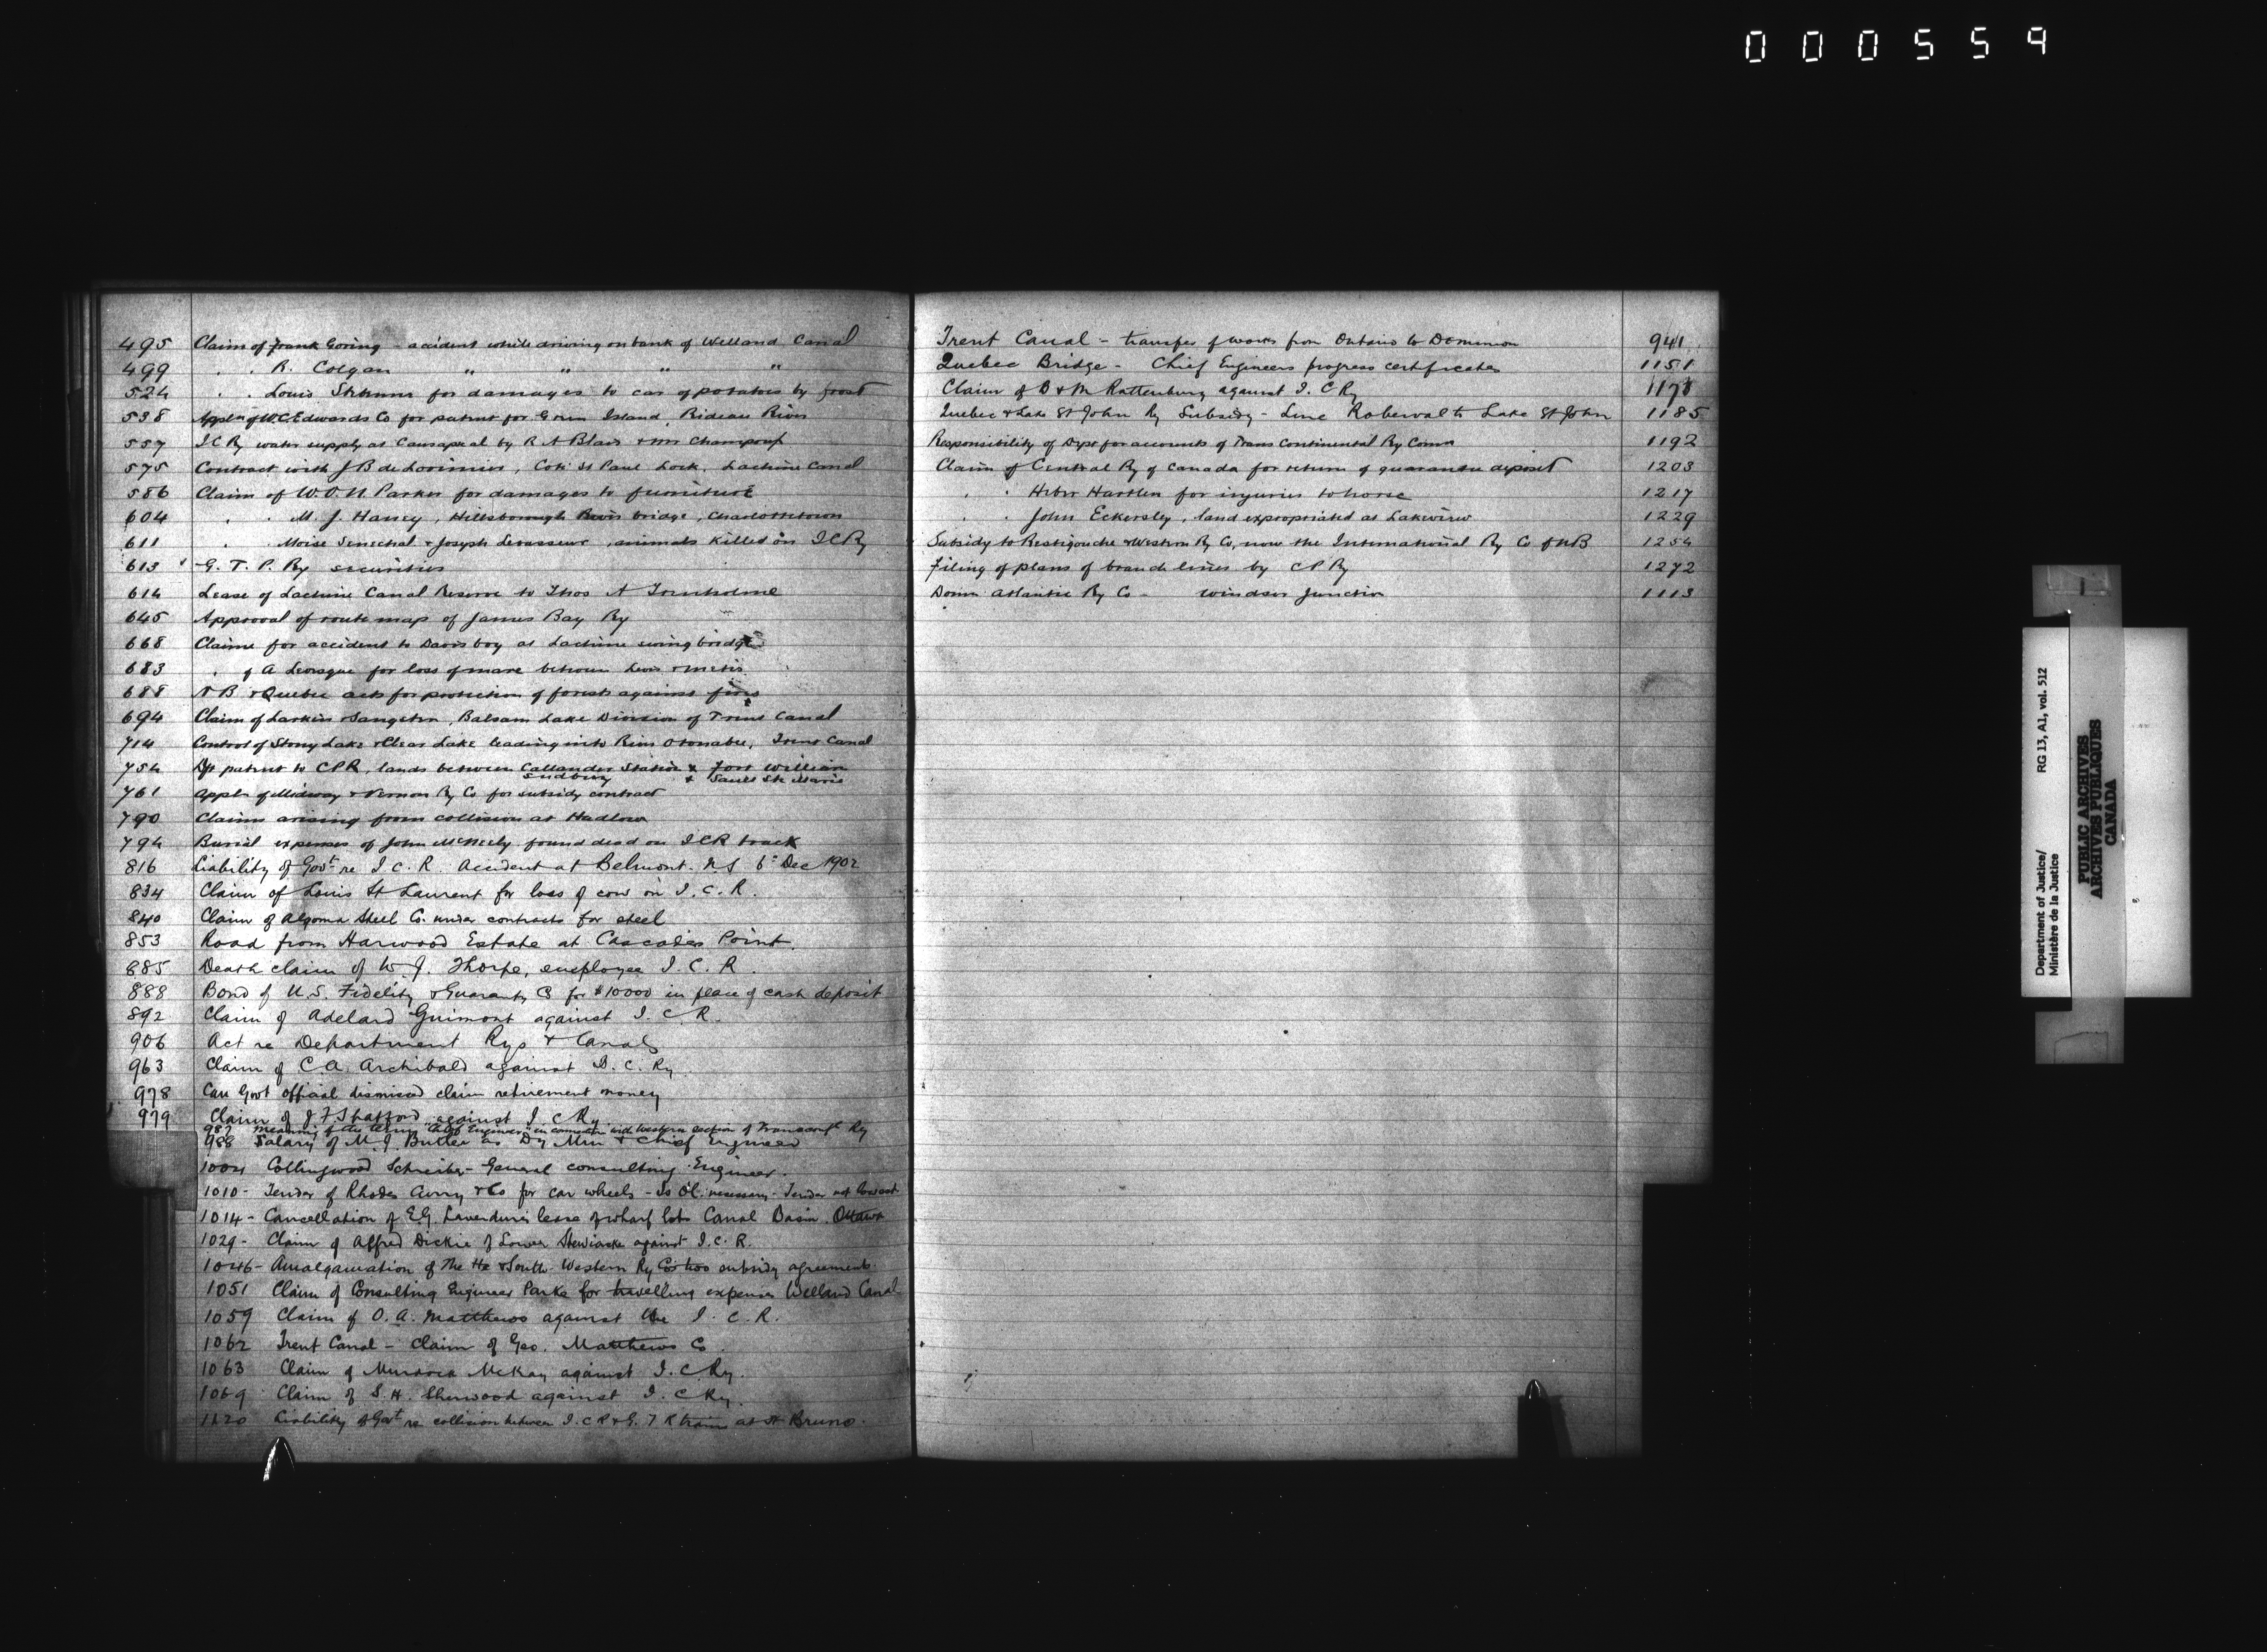 000559
495 Claim of Frank Goring - accident while driving on bank of Welland Canal
499 . . R. Colgan " " " "
524 . . Louis for damages to car of potatoes by frost
538 Appln of W.C. Edwards Co for patent for Green Island, Rideau River
557 I.C.Ry water supply at Causapscal by R A Blais & Mr
575 Contract with J B de Lorimier, Cote St Paul Lock, Lachine Canal
586 Claim of W.O.N. Parker for damages to furniture
604 . . M. J. Haney, Hillsborough River bridge, Charlottetown
611 . . Moise Senechal & Joseph Levasseur, animals killed on ICRy
613 G. T. P. Ry securities
614 Lease of Lachine Canal Reserve to Thos A
645 Approval of route map of James Bay Ry
668 Claim for accident to Davis boy at Lachine swing bridge
683 . of A Levesque for loss of mare between Levis & Metis
688 N B & Quebec acts for protection of forests against fires
694 Claim of Larkin & Sangster, Balsam Lake Division of Trent Canal
714 Control of Stony Lake & Clear Lake leading into River Otonabee, Trent Canal
754 Dft patent to CPR, lands between Callander Station & Fort William
Sudbury & Sault Ste Marie
761 Appln of Midway & Vernon Ry Co for subsidy contract
790 Claims arising from collision at Hadlow
794 Burial expenses of John McNeely found dead on ICR track
816 Liability of Govt re I. C. R. Accident at Belmont. N.S 6th Dec 1902
834 Claim of Louis St Laurent for loss of cow on I. C. R.
840 Claim of Algoma Steel Co. under contracts for steel
853 Road from Harwood Estate at Cascades Point.
885 Death claim of W. J. Thorpe, employee I. C. R.
888 Bond of U.S. Fidelity & Guaranty Co for $10000 in place of cash deposit
892 Claim of Adelard Guimont against I. C. R.
906 Act re Department Rys & Canals
963 Claim of C.A. Archibald against I. C. Ry.
978 Can Govt official dismissed claim retirement money
979 Claim of J F Stafford against I. C Ry
987 Meaning of the term "Chief Engineer" in connection with Western section of Transcontl Ry
988 Salary of M. J. Butler as Dy Min & Chief Engineer
1004 Collingwood Schreiber - General consulting Engineer.
1010 - Tender of Rhodes Curry & Co for car wheels - Is O.C. necessary - Tender not lowest
1014 - Cancellation of E.G. Laverdure's lease of wharf lots Canal Basin. Ottawa
1029 - Claim of Alfred Dickie of Lower Stewiacke against I. C. R.
1046 - Amalgamation of The Hx & South-Western Ry Cos two subsidy agreements
1051 Claim of Consulting Engineer Parke for travelling expenses Welland Canal
1059 Claim of O. A. Matthews against the I. C. R.
1062 Trent Canal - Claim of Geo. Matthews Co.
1063 Claim of Murdoch McKay against I. C Ry.
1069 Claim of S. H. Sherwood against I. C Ry.
1120 Liability of Govt re collision between I. C R & G. T R train at St Bruno.
Trent Canal - transfer of works from Ontario to Dominion 941
Quebec Bridge - Chief Engineers progress certificates 1151
Claim of B & M Rattenbury against I. C Ry 1178
Quebec & Lake St John Ry Subsidy - Line Roberval to Lake St John 1185
Responsibility of Dept for accounts of Trans Continental Ry Comn 1192
Claim of Central Ry of Canada for return of guarantee deposit 1203
. . Heber Hartlen for injuries to horse 1217
. . John Eckersley, land expropriated at Lakeview 1229
Subsidy to Restigouche & Western Ry Co, now the International Ry Co of N B 1254
Filing of plans of branch lines by CP Ry 1272
Domn Atlantic Ry Co - Windsor Junction 1113
Department of Justice/ RG 13, A1, vol. 512
Ministère de la Justice
PUBLIC ARCHIVES
ARCHIVES PUBLIQUES
CANADA